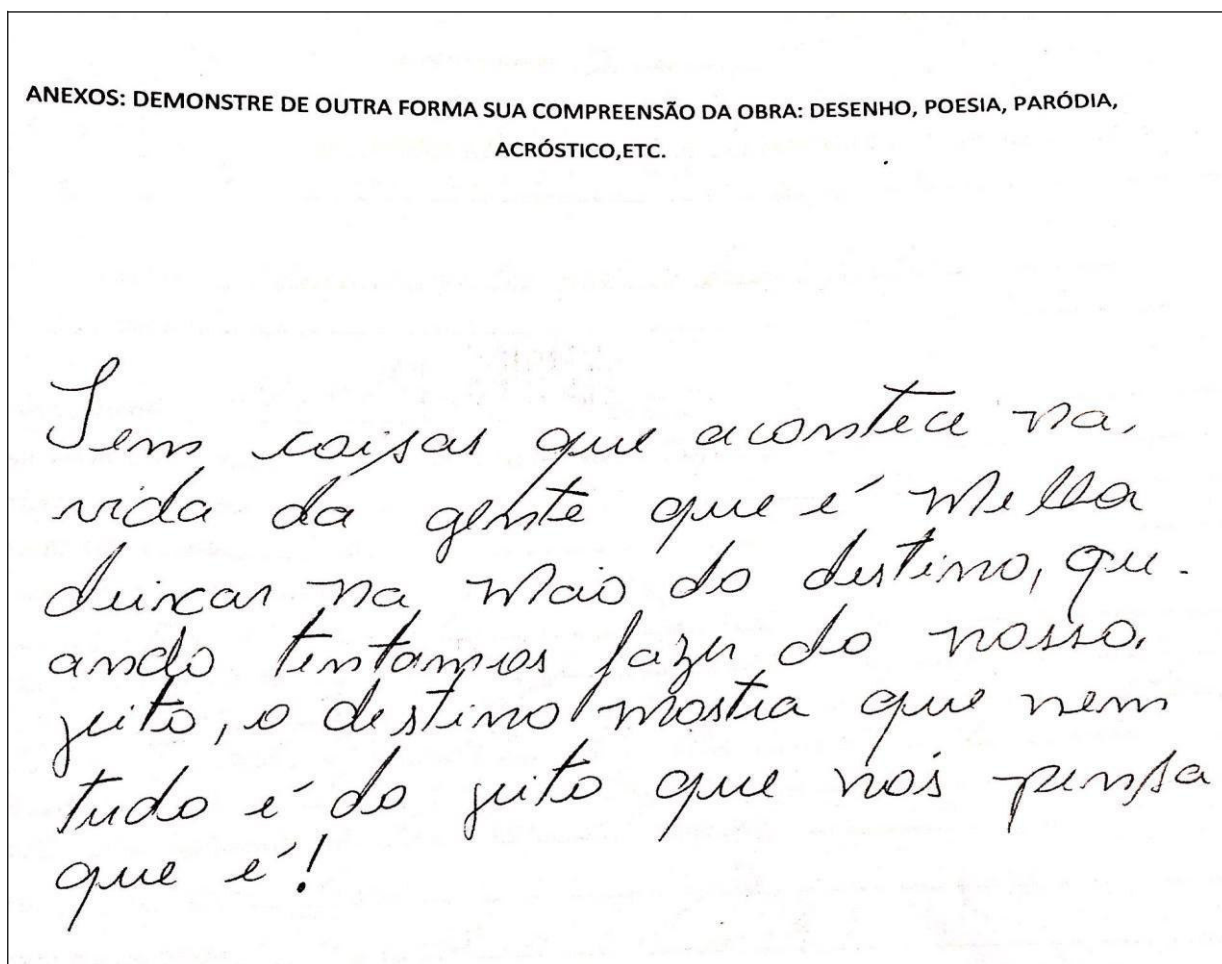 ANEXOS: DEMONSTRE DE OUTRA FORMA SUA COMPREENSÃO DA OBRA: DESENHO, POESIA, PARÓDIA,
ACRÓSTICO,ETC.
Tem coisas que acontece na
vida da gente que é melhor
deixar na mão do destino, qu-
ando tentamos fazer do nosso
jeito, o destino mostra que nem
tudo é do jeito que nós pensa
que é!